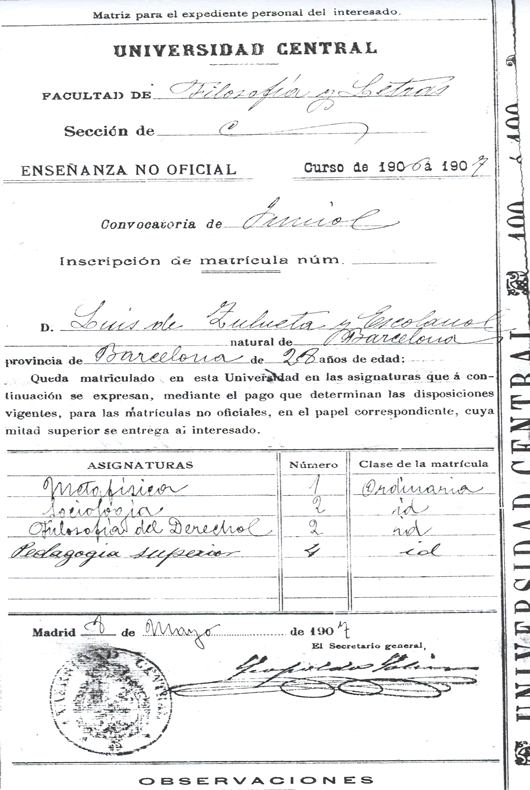 Matriz para el expediente personal del interesado.
UNIVERSIDAD CENTRAL
FACULTAD DE Filosofía y Letras
Sección de
ENSEÑANZA NO OFICIAL Curso de 1906 á 1907
Convocatoria de Junio
Inscripción de matrícula núm.
D. Luis de Zulueta y Escolano
natural de Barcelona
provincia de Barcelona de 28 años de edad:
Queda matriculado en esta Universidad en las asignaturas que á con-
tinuación se expresan, mediante el pago que determinan las disposiciones
vigentes, para las matrículas no oficiales, en el papel correspondiente, cuya
mitad superior se entrega al interesado.
ASIGNATURAS Número Clase de la matrícula
Metafísica 1 Ordinaria
Sociología 2 id
Filosofía del Derecho 2 id
Pedagogía superior 4 id
Madrid 8 de Mayo de 1907
El Secretario general,
OBSERVACIONES
UNIVERSIDAD CENTRAL